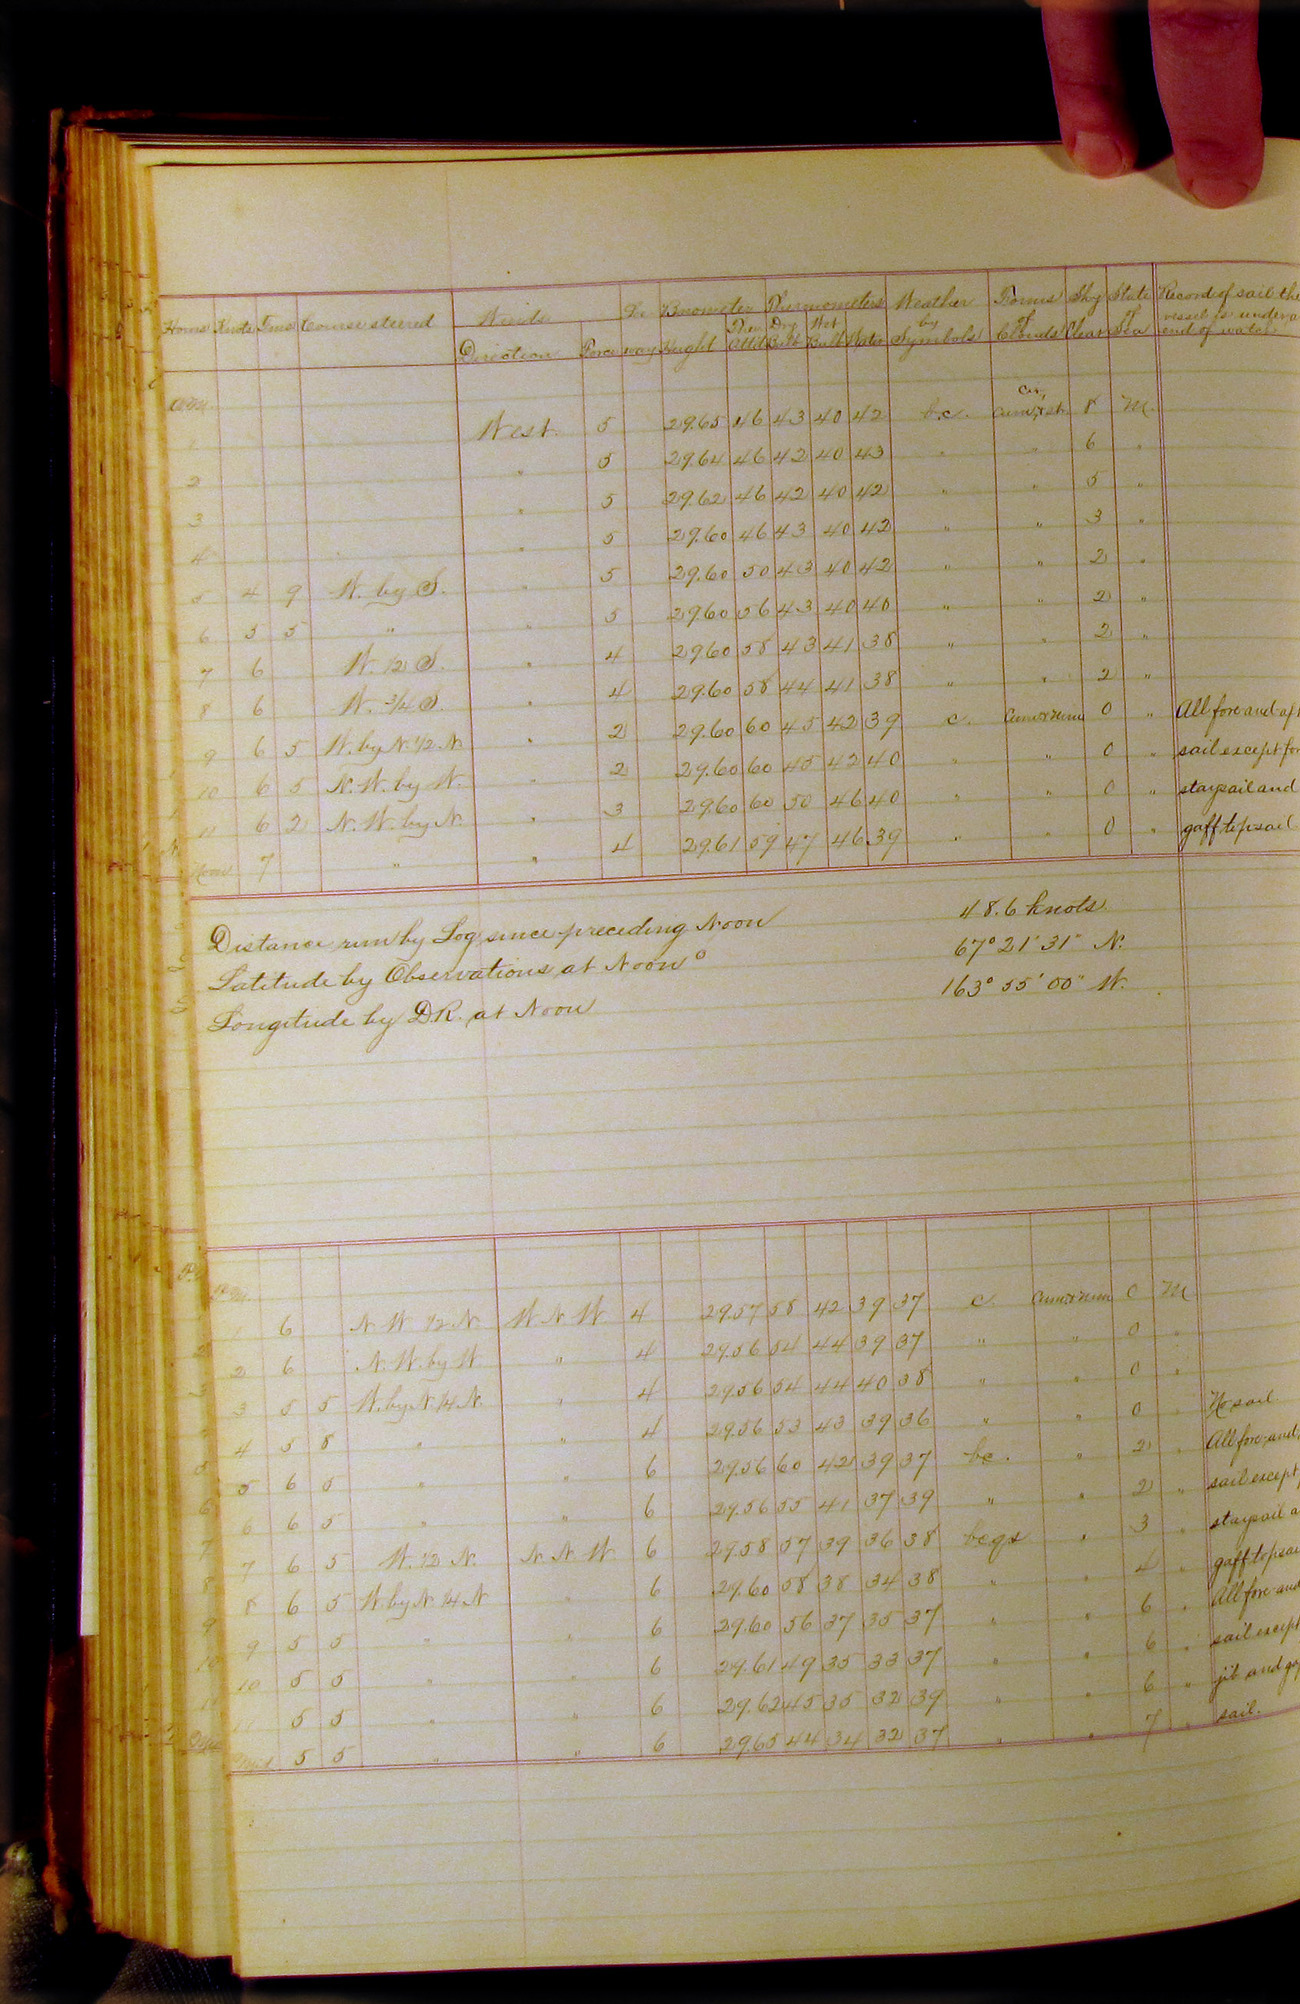 Hours Knots Tens Course steered Winds Direction Force Lee way Barometer Height Ther. Attd Thermometers Dry Bulb Wet Bulb Water Weather by Symbols Forms of Clouds Sky Clear State of Sea Record of sail the vessel is under a end of watch
A.M.
1 West 5 29.65 46 43 40 42 b.c. Cir, Cum, & st. 8 M.
2 " 5 29.64 46 42 40 43 " " 6 "
3 " 5 29.62 46 42 40 42 " " 5 "
4 " 5 29.60 46 43 40 42 " " 3 "
5 4 9 W. by S. " 5 29.60 50 43 40 42 " " 2 "
6 5 5 " " 5 29.60 56 43 40 40 " " 2 "
7 6 W. 1/2 S. " 4 29.60 58 43 41 38 " " 2 "
8 6 W. 3/4 S. " 4 29.60 58 44 41 38 " " 2 "
9 6 5 W. by N. 1/2 N. " 2 29.60 60 45 42 39 c. Cum & Nim 0 " All fore and aft
10 6 5 N. W. by W. " 2 29.60 60 45 42 40 " " 0 " sail except for
11 6 2 N. W. by N. " 3 29.60 60 50 46 40 " " 0 " staysail and
Noon 7 " " 4 29.61 59 47 46 39 " " 0 " gaff topsail
Distance run by Log since preceding Noon 48.6 knots
Latitude by Observations at Noon 67° 21' 31" N.
Longitude by D.R. at Noon 163° 55' 00" W.
P.M.
1 6 N. W. 1/2 N. W N W 4 29.57 58 42 39 37 c. Cum & Nim 0 M
2 6 N. W. by W. " 4 29.56 54 44 39 37 " " 0 "
3 5 5 W. by N. 1/4 N. " 4 29.56 54 44 40 38 " " 0 "
4 5 8 " " 4 29.56 53 43 39 36 " " 0 " No sail
5 6 5 " " 6 29.56 60 42 39 37 bc. " 2 " All fore-and
6 6 5 " " 6 29.56 55 41 37 39 " " 2 " sail except
7 6 5 W. 1/2 N. N. N. W. 6 29.58 57 39 36 38 bcqs " 3 " staysail a
8 6 5 W. by N. 1/4 N " 6 29.60 58 38 34 38 " " 4 " gaff topsai
9 5 5 " " 6 29.60 56 37 35 37 " " 6 " All fore-and
10 5 5 " " 6 29.61 49 35 33 37 " " 6 " sail except
11 5 5 " " 6 29.62 45 35 32 39 " " 6 " jib and gaf
Mid. 5 5 " " 6 29.65 44 34 32 37 " " 7 " sail.